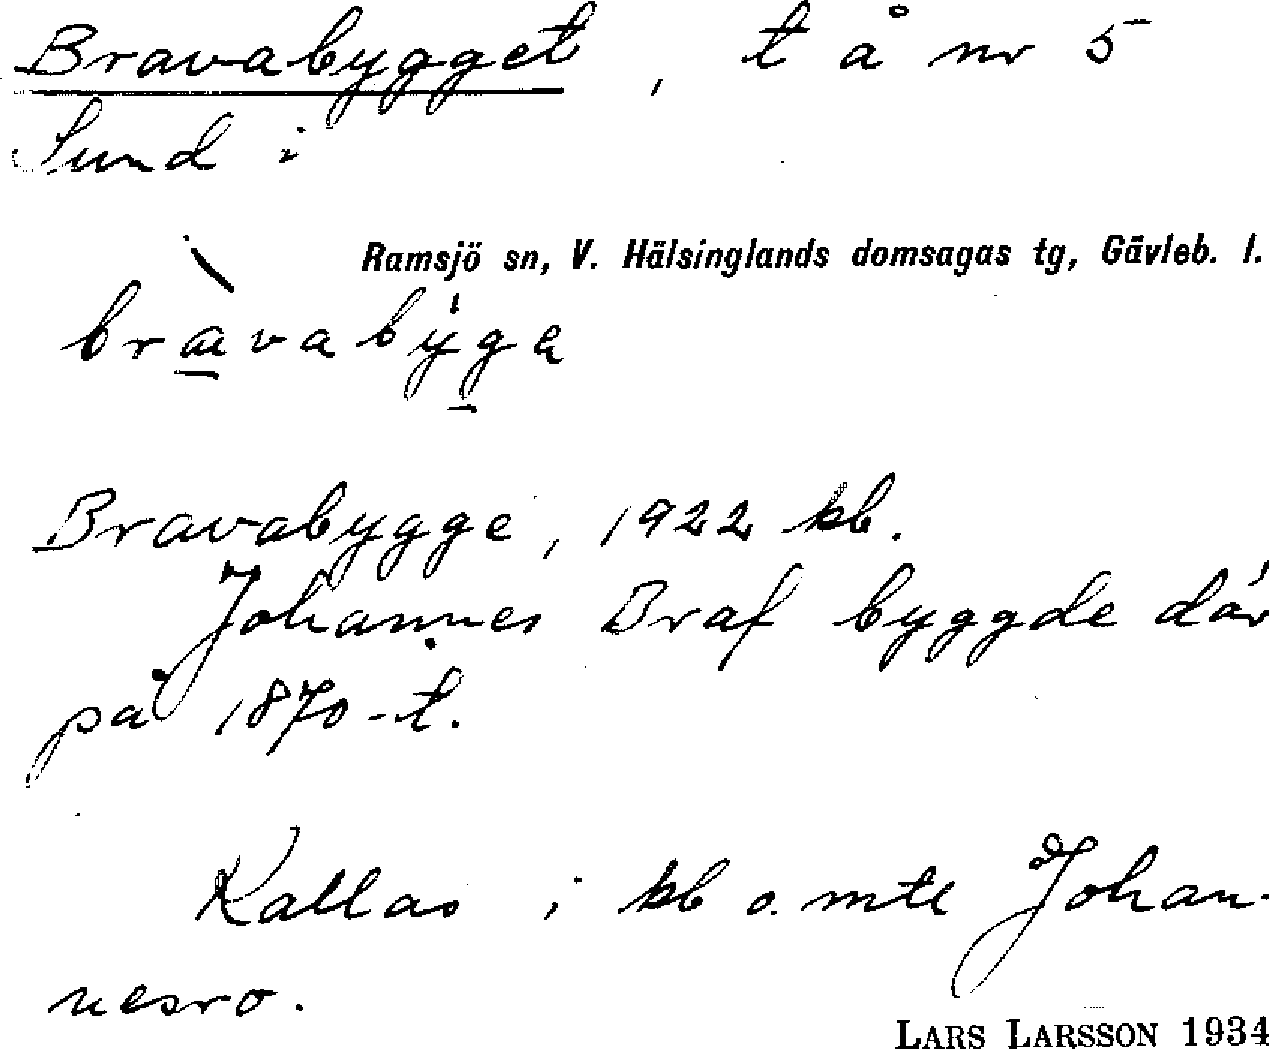 Bravabygget, t å nr 5
Sund i
Ramsjö sn, V. Hälsinglands domsagas tg, Gävleb. l.
bràvabýga
Bravabygge, 1922 kb.
Johannes Braf byggde där
på 1870-t.
Kallas i kb o. mtl Johan-
nesro.
LARS LARSSON 1934